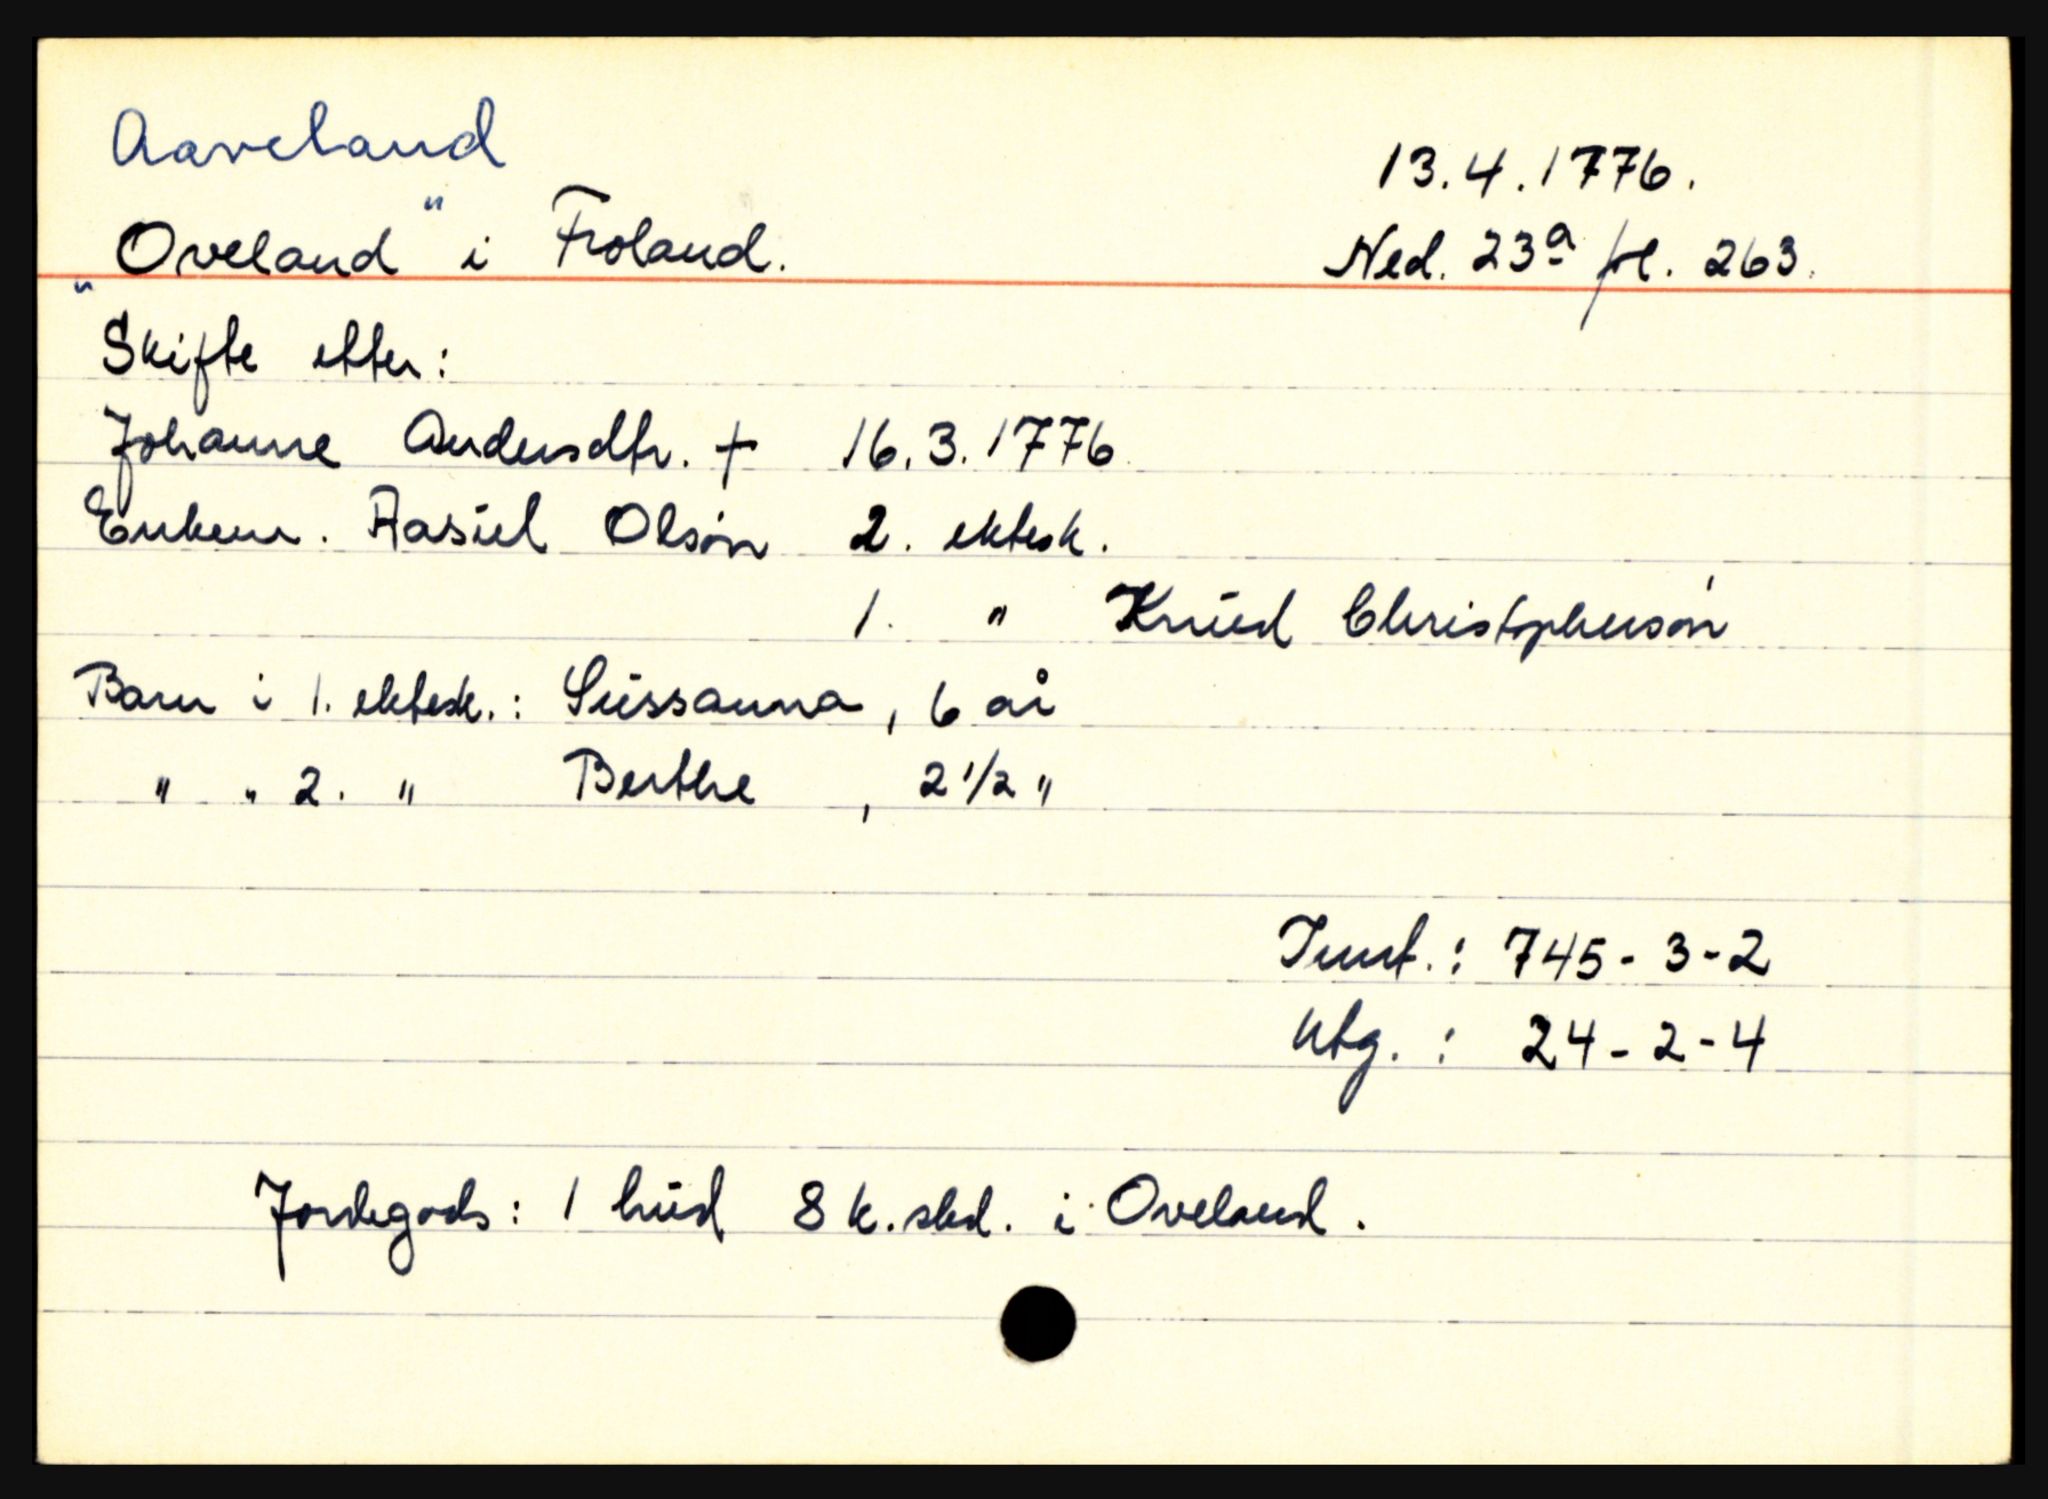 Aaveland
13.4.1776.
"Oveland" i Froland.
Ned. 23a fol. 263.
Skifte etter:
Johanne Andersdtr. † 16.3.1776
Enkem. Aasul Olsøn 2. ektesk.
1. " Knud Christophersøn
Barn i 1. ektesk.: Sussanna, 6 år
" " 2. " Berthe , 2 1/2 "
Innt.: 745 - 3 - 2
Utg. : 24 - 2 - 4
Jordegods: 1 hud 8 k.skd. i Oveland.